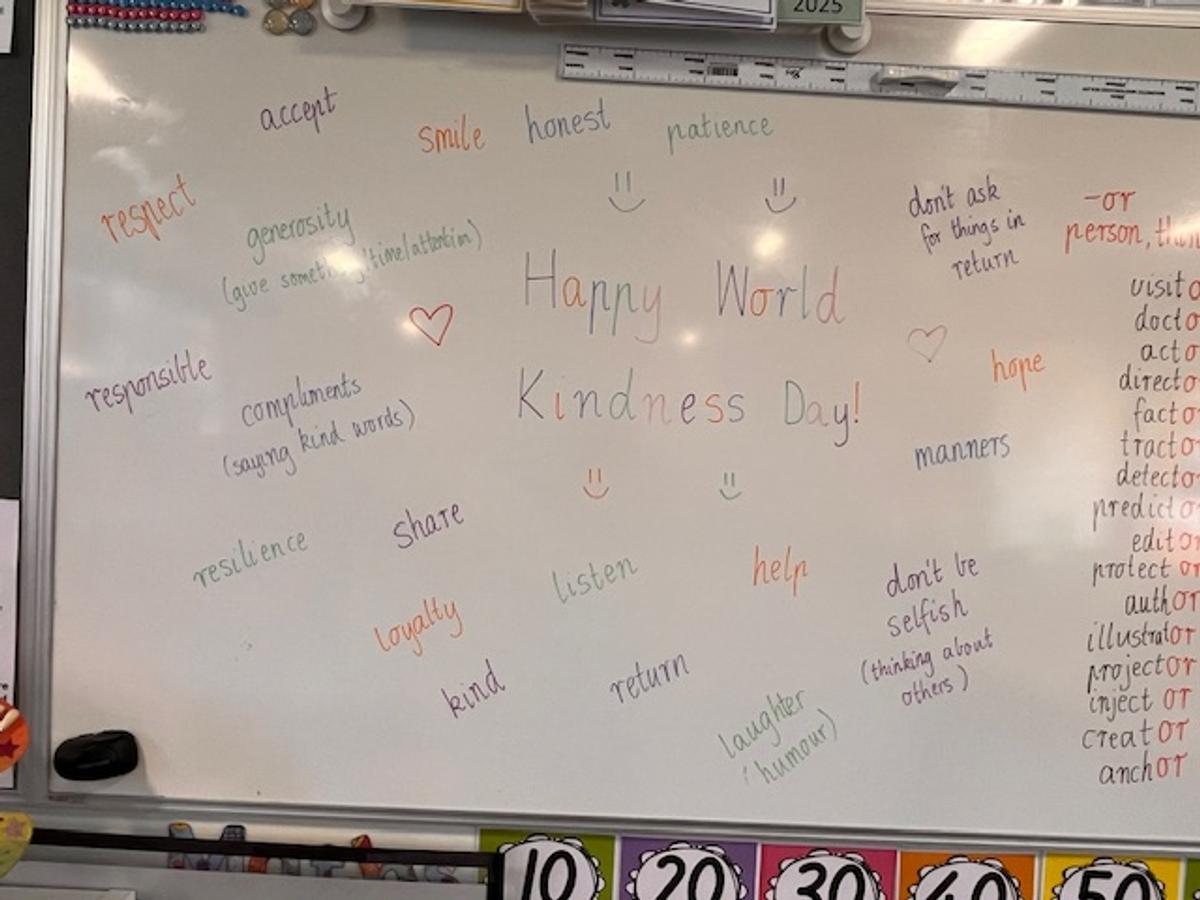 2025
accept
smile
honest
patience
respect
generosity
(give something/time/attention)
don't ask
for things in
return
-or
person,
Happy World
Kindness Day!
responsible
compliments
(saying kind words)
hope
manners
resilience
share
listen
help
don't be
selfish
(thinking about
others)
loyalty
kind
return
laughter
(humour)
visito
docto
acto
directo
facto
tracto
detecto
predicto
editor
protect or
author
illustrator
projector
inject or
creat or
anchor
10 20 30 40 50